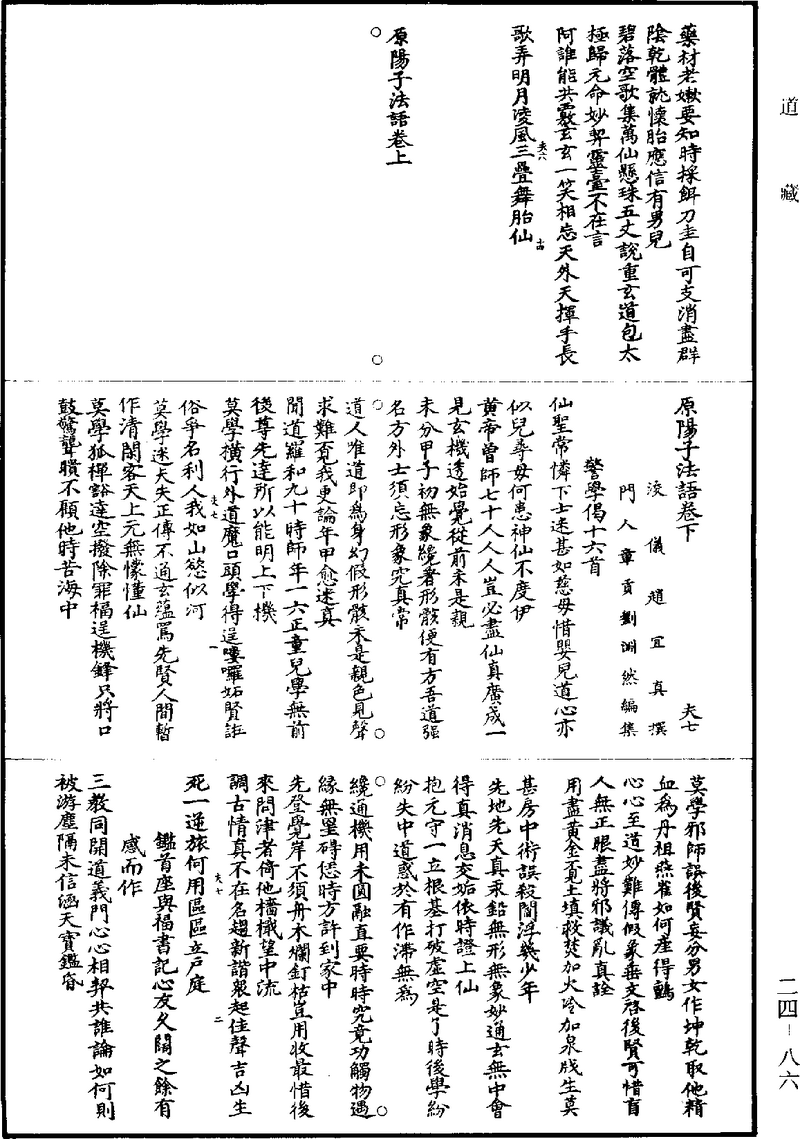 道藏
藥材老嫩要知時採餌刀圭自可支消盡群
陰乾體就懷胎應信有男兒
碧落空歌集萬仙懸珠五丈說重玄道包太
極歸元命妙契靈臺不在言
阿誰能共覈玄玄一笑相忘天外天揮手長
歌弄明月凌風三疊舞胎仙
夫六
十四
原陽子法語卷上
原陽子法語卷下
夫七
浚儀趙宜真撰
門人章貢劉淵然編集
警學偈十六首
仙聖常憐下士迷甚如慈母惜嬰兒道心亦
似兒尋母何患神仙不度伊
黃帝曾師七十人人人豈必盡仙真廣成一
見玄機透始覺從前未是親
未分甲子初無象纔著形骸便有方吾道強
名方外士須忘形象究真常
道人唯道即為身幻假形骸未是親色見聲
求難覓我更論年甲愈迷真
聞道羅和九十時師年一六正童兒學無前
後尊先達所以能明上下機
莫學橫行外道魔口頭學得逞嘍囉妬賢誑
俗爭名利人我如山慾似河
夫七
一
莫學迷夫失正傳不通玄蘊罵先賢人間暫
作清閑客天上元無懞懂仙
莫學狐禪豁達空撥除罪福逞機鋒只將口
鼓驚聾瞶不顧他時苦海中
莫學邪師誤後賢妄分男女作坤乾取他精
血為丹祖燕雀如何產得鸇
心心至道妙難傳假象垂文啓後賢可惜盲
人無正眼盡將邪議亂真詮
用盡黃金覓土填救焚加火冷加泉戕生莫
甚房中術誤殺閻浮幾少年
先地先天真汞鉛無形無象妙通玄無中會
得真消息交姤依時證上仙
抱元守一立根基打破虛空是了時後學紛
紛失中道惑於有作滯無為
纔通機用未圓融直要時時究竟功觸物遇
緣無罣礙恁時方許到家中
先登覺岸不須舟木爛釘枯豈用收最惜後
來問津者倚他檣檝望中流
調古情真不在名趨新諧衆起佳聲吉凶生
死一逆旅何用區區立戶庭
夫七
二
鑑首座與福書記心友久闊之餘有
感而作
三教同開道義門心心相契共誰論如何則
被游塵隔未信涵天寶鑑昏
二四-八六